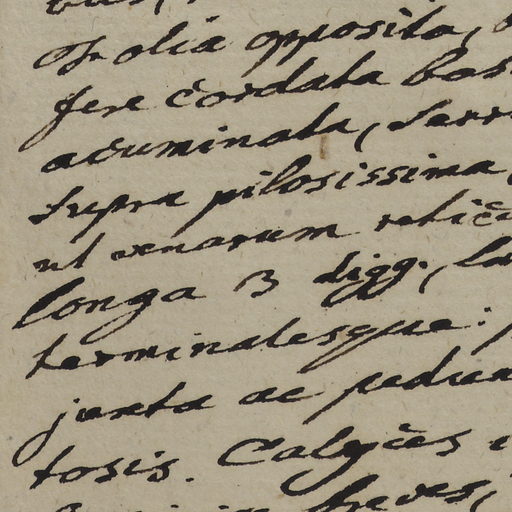 Folia opposita,
fere cordata bas
acuminata, serr
supra pilosissima,
ut venarum retic
longa 3 digg., la
terminalesque:
juxta ac pedun
tosis. Calyces
breves,